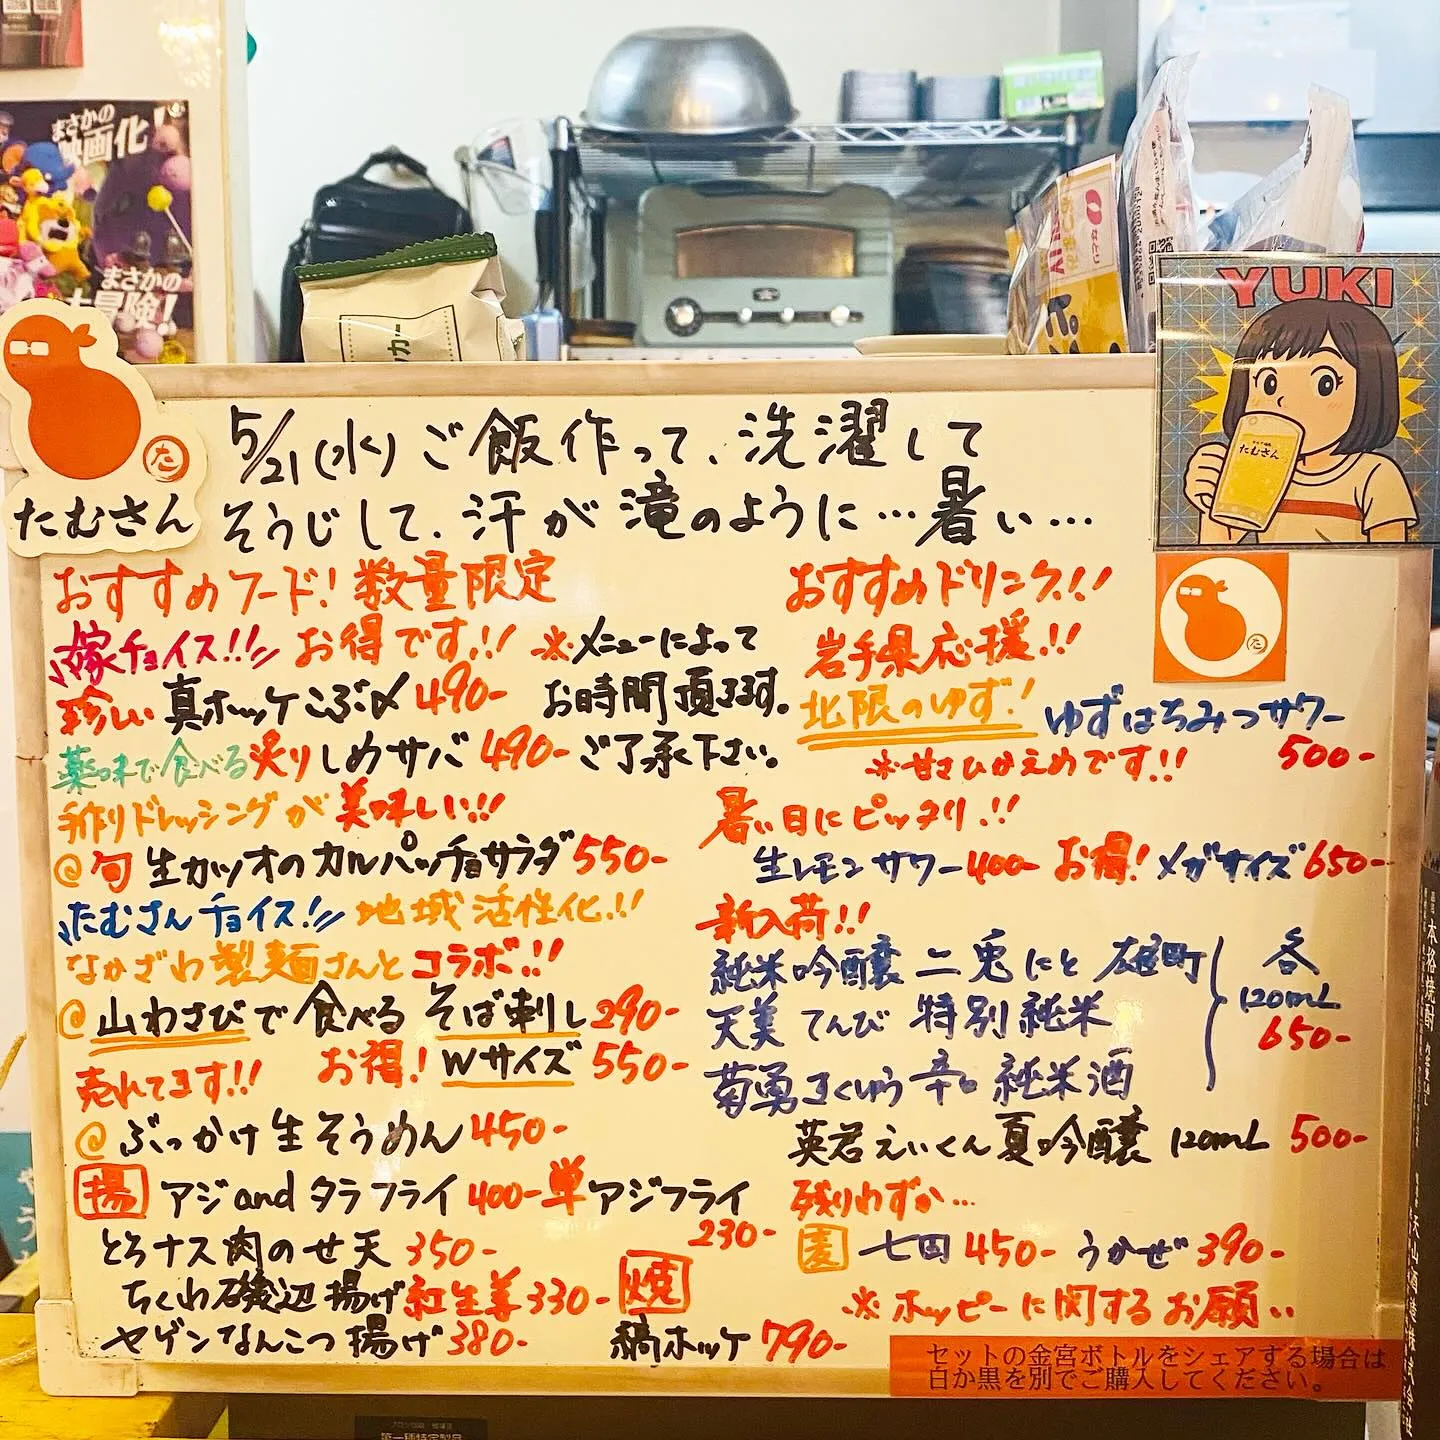 まさかの
映画化!
まさかの
大冒険!
YUKI
たむさん
た
たむさん
5/21(水)ご飯作って、洗濯して
そうじして、汗が滝のように…暑い…
おすすめフード!数量限定
嫁チョイス!! お得です!! ※メニューによって
お時間頂きます。
ご了承下さい。
珍しい 真ホッケこぶ〆 490-
薬味で食べる炙りしめサバ 490-
手作りドレッシングが美味しい!!
@旬 生カツオのカルパッチョサラダ 550-
たむさんチョイス!! 地域活性化!!
なかざわ製麺さんとコラボ!!
@山わさびで食べるそば刺し 290-
お得! Wサイズ 550-
売れてます!!
@ぶっかけ生そうめん 450-
揚 アジandタラフライ 400- 単アジフライ
230-
とろナス肉のせ天 350-
ちくわ磯辺揚げ紅生姜 330-
ヤゲンなんこつ揚げ 380-
焼
縞ホッケ 790-
おすすめドリンク!!
岩手県応援!!
北限のゆず! ゆずはちみつサワー
※甘さひかえめです!! 500-
暑い日にピッタリ!!
生レモンサワー 400- お得!メガサイズ 650-
新入荷!!
純米吟醸 二兎にと 雄町
天美てんび 特別純米
菊勇きくゆう 辛口 純米酒
各
120mL
650-
英君えいくん夏吟醸 120mL 500-
残りわずか…
麦 七田 450- うかぜ 390-
※ホッピーに関するお願い
セットの金宮ボトルをシェアする場合は
白か黒を別でご購入してください。
本格焼酎